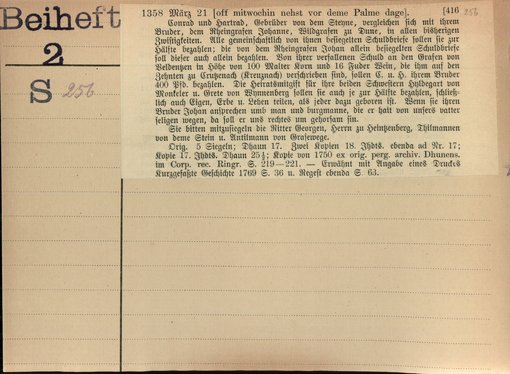 Beiheft
2
S 256.
1358 März 21 [off mitwochin nehst vor deme Palme dage]. [416 256
Conrad und Hartrad, Gebrüder von dem Steyne, vergleichen sich mit ihrem
Bruder, dem Rheingrafen Johanne, Wildgrafen zu Dune, in allen bisherigen
Zwistigkeiten. Alle gemeinschaftlich von ihnen besiegelten Schuldbriefe sollen sie zur
Hälfte bezahlen; die von dem Rheingrafen Johan allein besiegelten Schuldbriefe
soll dieser auch allein bezahlen. Von ihrer verfallenen Schuld an den Grafen von
Veldentzen in Höhe von 100 Malter Korn und 16 Fuder Wein, die ihm auf den
Zehnten zu Crutzenach (Kreuznach) verschrieben sind, sollen C. u. H. ihrem Bruder
400 Pfd. bezahlen. Die Heiratsmitgift für ihre beiden Schwestern Hyldegart von
Monkeler u. Grete von Wynnenberg sollen sie auch je zur Hälfte bezahlen, schließ-
lich auch Eigen, Erbe u. Lehen teilen, als jeder dazu geboren ist. Wenn sie ihren
Bruder Johan ansprechen umb man und burgmanne, die er hait von unsers vatter
seligen wegen, da soll er uns rechtes um gehorsam sin.
Sie bitten mitzusiegeln die Ritter Georgen, Herrn zu Heintzenberg, Thilmannen
von deme Stein u. Antilman von Grasewege.
Orig. 5 Siegeln; Dhaun 17. Zwei Kopien 18. Jhdts. ebenda ad Nr. 17;
Kopie 17. Jhdts. Dhaun 25½; Kopie von 1750 ex orig. perg. archiv. Dhunens.
im Corp. rec. Ringr. S. 219—221. — Erwähnt mit Angabe eines Druckes
Kurzgefaßte Geschichte 1769 S. 36 u. Regest ebenda S. 63.